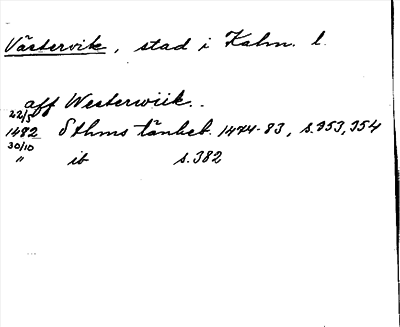 Västervik, stad i Kalm. l.
aff Westerwiik..
22/5
1482 Sthms tänkeb. 1474-83, s.353, 354
30/10
" ib s.382